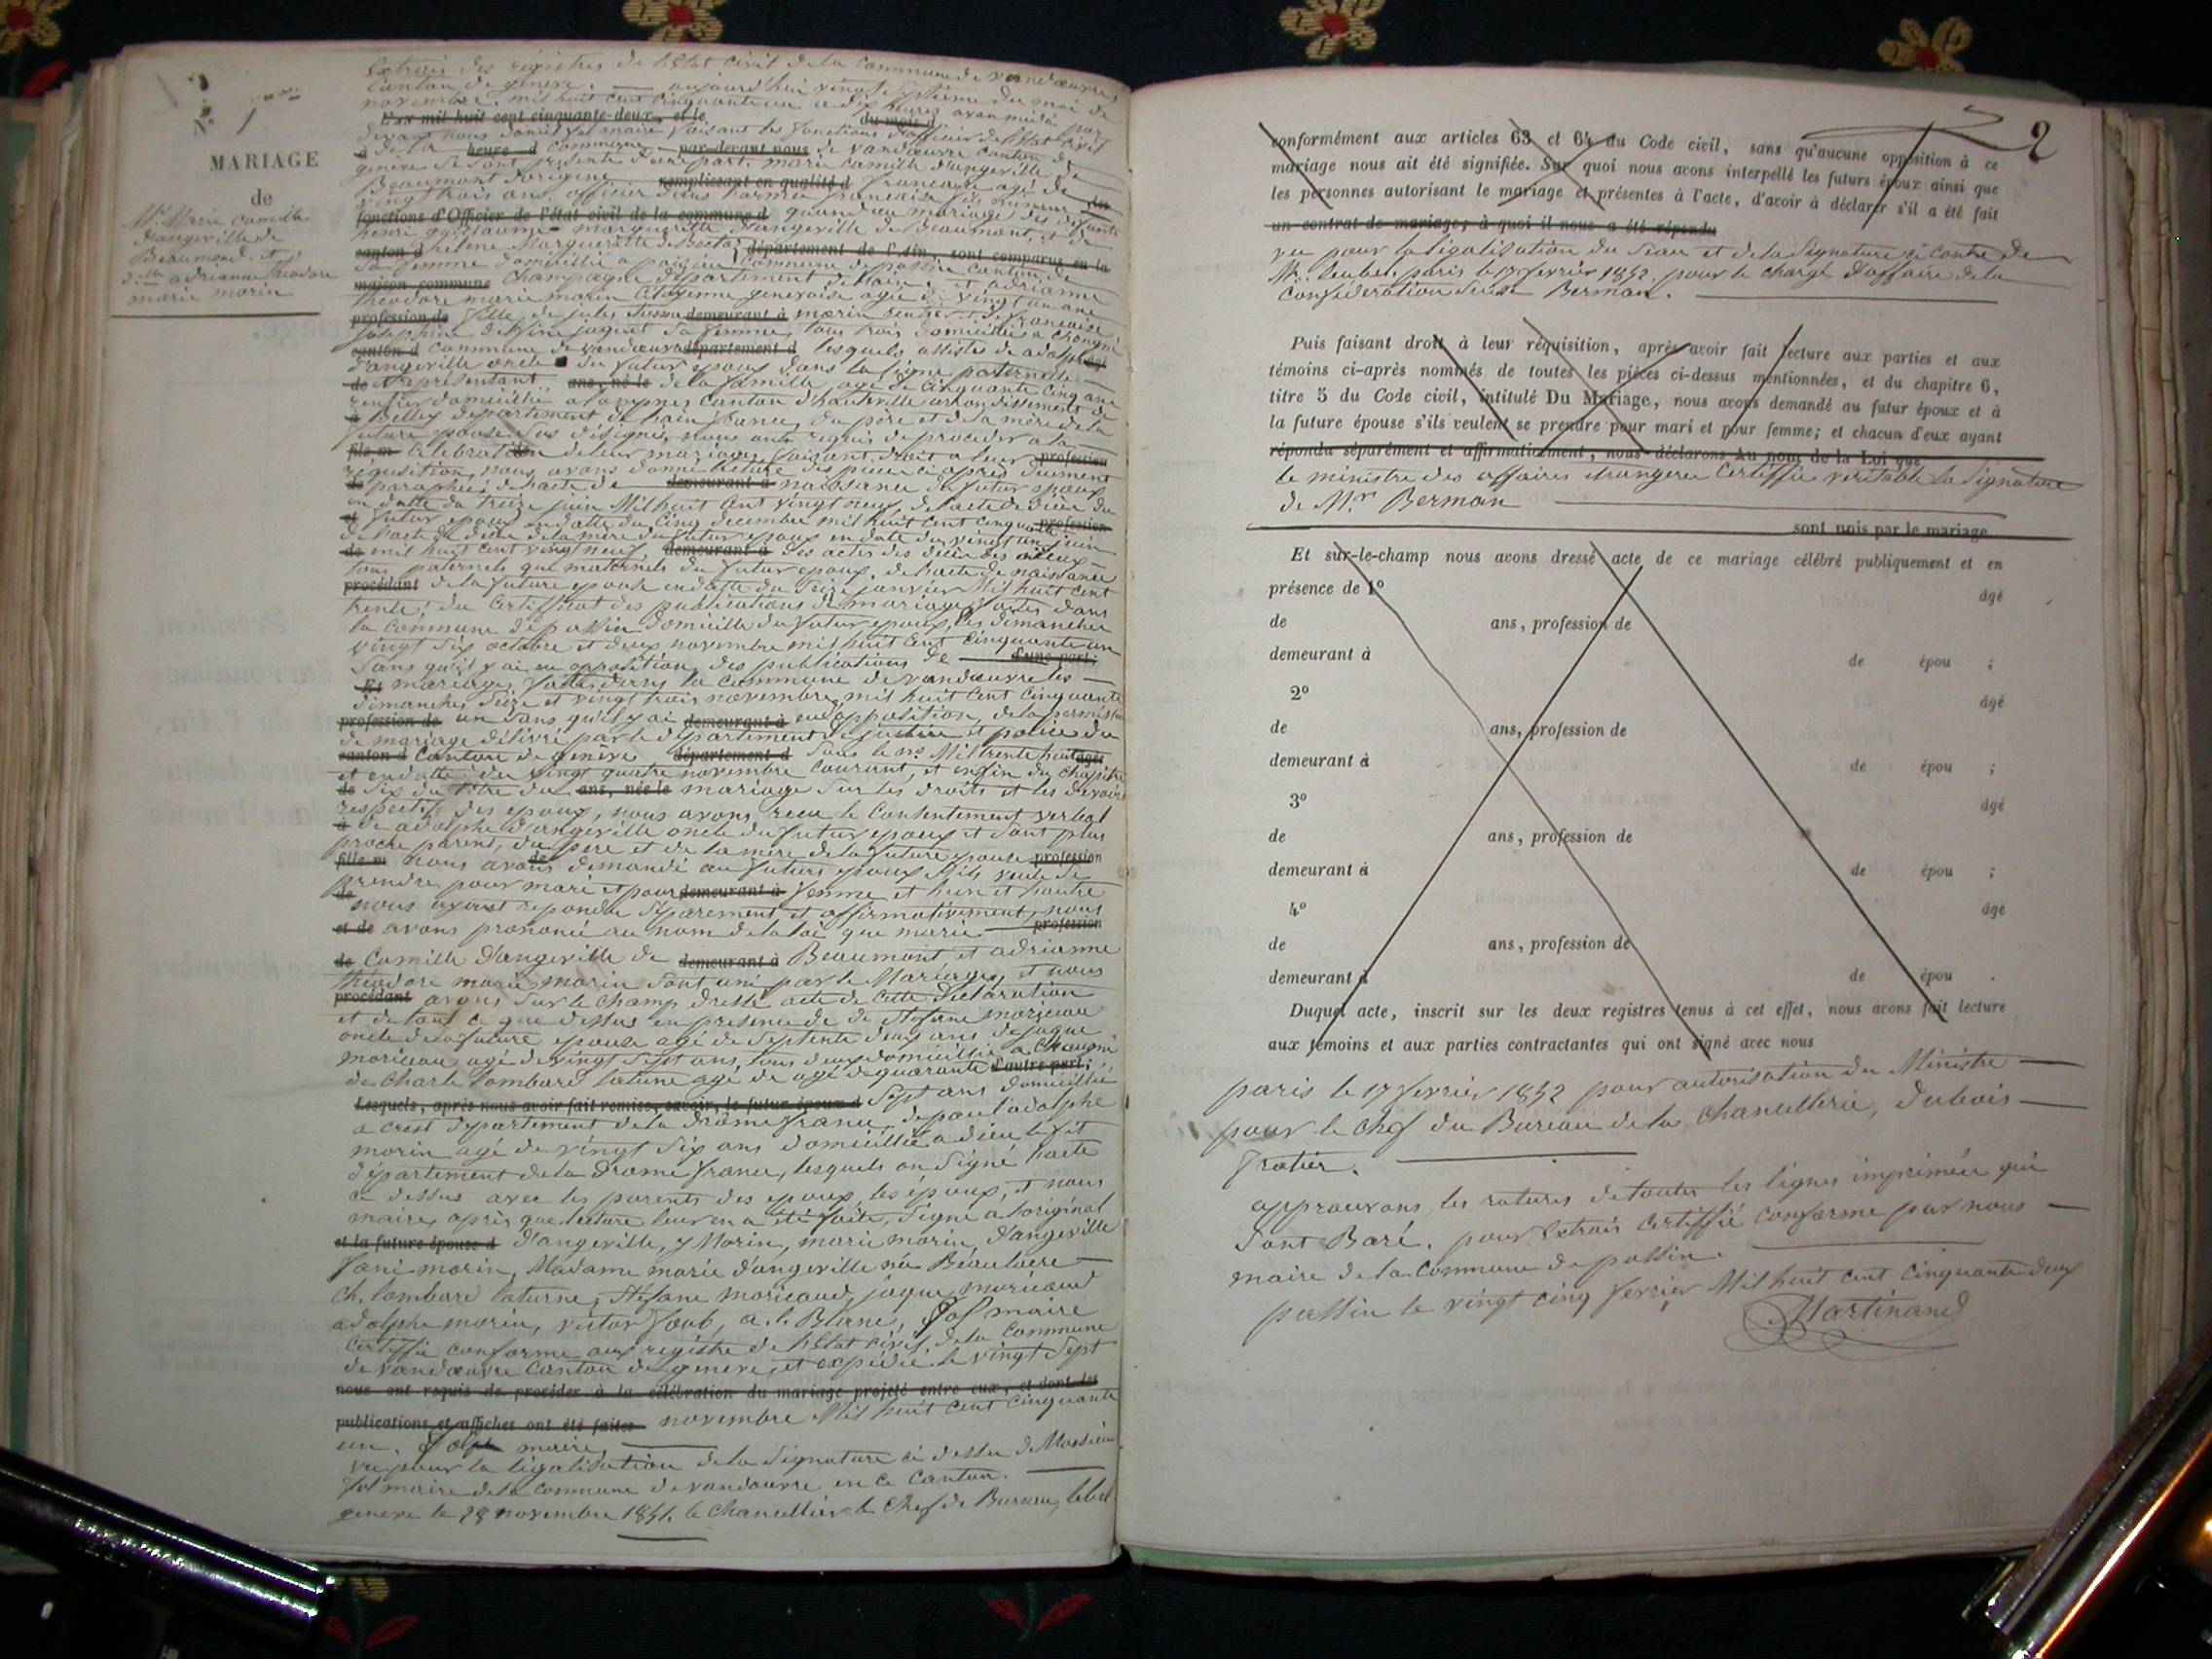 Nº 1
MARIAGE
de
Mr. Marie Camille
d'angeville de
Beaumond. et
dlle adrianne théodore
marie morin
Extrais des registres de l'Etat Civil de la Commune de vandœuvre
Canton de genève. — aujourd'hui vingt septième du moi de
novembre. mil huit cent cinquante un a dix heures avan midi par
L'an mil huit cent cinquante-deux, et le du mois d
devant nous maire faisant les fonctions d'officier de l'Etat Civil
à de la heure d commune par-devant nous de vandœuvre canton de
genève se sont présenté d'une part. marie Camille d'angeville de
Beaumont d'origine remplissant en qualité d française agé de
vingt trois ans, officier dans l'armée française fils mineur des
fonctions d'Officier de l'état civil de la commune d quand au mariage des défunts
henri guillaume marguerite d'angeville de Beaumont, et de
canton d hélène Marguerite département de l'Ain, sont comparus en la
sa femme domicilié a commune de canton de
maison commune Champagne département de l'ain. et adrianne
théodore marie morin Citoyenne genevoise agée de vingt un ans
profession de fille de jules demeurant à morin rentier et de françoise
joséphine delphine jaquet sa femme, tous trois domiciliés a chougni
canton d commune de vandœuvre département d lesquels assistés de adolphe âgé
d'angeville oncle du futur epoux dans la ligne paternelle
de et représentant ans, né le de la famille, agé de cinquante cinq ans
rentier domicilié a lompnes Canton d'hauteville arrondissement de
à Belley département de l'ain france, du père et de la mère de la
future epouse sus désignés, nous ont requis de procéder a la
fils m Célébration de leur mariage, faisant droit a leur profession
réquisition, nous avons donné lecture des pièces ci après dument
de paraphées, de l'acte de demeurant à naissance du futur epoux
en datte du treize juin Mil huit cent vingt neuf, de l'acte de décès du
et futur epoux en datte du cinq decembre mil huit cent cinquante profession
de l'acte de décès de la mère du futur epoux en date du vingt un juin
de mil huit cent vingt neuf, demeurant à des actes des décès des aieux
tous paternels que maternels du futur epoux, de l'acte de naissance
procédant de la future epouse en datte du treize janvier Mil huit cent
trente, du Certifficat des publications de mariage faites dans
la commune de passin domicile du futur epoux, les dimanches
vingt six octobre et deux novembre mil huit cent cinquante un
sans qu'il y ai eu opposition, des publications de d'une part;
Et mariage, faites dans la commune de vandœuvre les
dimanches seize et vingt trois novembre mil huit cent cinquante
profession de un sans qu'il y ai demeurant à eu opposition, de la permission
de mariage délivré par le département de justice et police du
canton d Canton de genève département d sous le no. Mil trente huit âgée
et en datte du vingt quatre novembre courant, et enfin du chapitre
de six du titre du ans, née le mariage sur les droits et les devoirs
respectifs des epoux, nous avons recu le Consentement verbal
à de adolphe d'angeville oncle du futur epoux et sont plus
proche parent, du père et de la mère de la future epouse
fille m nous avons de demandé au futurs epoux s'ils veule se profession
prendre pour mari et pour demeurant à femme et l'un et l'autre
de nous ayant repondu séparement et affirmativement, nous
et de avons prononcé au nom de la loi que marie profession
de Camille d'angeville de demeurant à Beaumont et adrianne
théodore marie morin sont uni par le Mariage, et nous
procédant avons sur le champ dressé acte de cette déclaration
et de tout ce que dessus en présence de de Stefane moricau
oncle de la future epouse agé de septente deux ans de jaque
moricau agé de vingt sept ans, tous deux domicilié a chougni
de Charle lombard laturne agé de agé de quarante d'autre part;
Lesquels, après nous avoir fait remise, savoir, le futur époux d sept ans domicilié
a crest département de la drome france, de paul adolphe
morin agé de vingt six ans domicilié a dieu le fit
département de la drome france, lesquels on signé l'acte
ci dessus avec les parents des epoux, les époux, et nous
maire, après que lecture leur en a été faite, signé a l'original
et la future épouse d d'angeville, J Morin, marie morin, d'angeville
fani morin, Madame marie d'angeville née
ch. lombard laturne, Stefane moricaud, jaque moricaud
adolphe morin, victor a. l. maire
Certifié conforme aux registre de l'Etat civil de la commune
de vandœuvre Canton de geneve, et expédié le vingt sept
nous ont requis de procéder à la célébration du mariage projeté entre eux, et dont les
publications et affiches ont été faites novembre Mil huit cent cinquante
un. maire,
vu pour la légalisation de la signature ci dessu de Monsieur
maire de la commune de vandœuvre en ce canton.
geneve le 28 novembre 1851. le Chancellier le chef de Bureau,
2
conformément aux articles 63 et 64 du Code civil, sans qu'aucune opposition à ce
mariage nous ait été signifiée. Sur quoi nous avons interpellé les futurs époux ainsi que
les personnes autorisant le mariage et présentes à l'acte, d'avoir à déclarer s'il a été fait
un contrat de mariage; à quoi il nous a été répondu
vu pour la légalisation du seau et de la signature ci contre de
Mr. paris le 17 fevrier 1852. pour le chargé d'affaire de la
Conféderation Suisse Berman.
Puis faisant droit à leur réquisition, après avoir fait lecture aux parties et aux
témoins ci-après nommés de toutes les pièces ci-dessus mentionnées, et du chapitre 6,
titre 5 du Code civil, intitulé Du Mariage, nous avons demandé au futur époux et à
la future épouse s'ils veulent se prendre pour mari et pour femme; et chacun d'eux ayant
répondu séparément et affirmativement, nous déclarons Au nom de la Loi que
le ministre des affaires etrangeres Certiffie veritable la signature
de Mr. Berman
sont unis par le mariage
Et sur-le-champ nous avons dressé acte de ce mariage célébré publiquement et en
présence de 1º âgé
de ans, profession de
demeurant à de épou ;
2º âgé
de ans, profession de
demeurant à de épou ;
3º âgé
de ans, profession de
demeurant à de épou ;
4º âgé
de ans, profession de
demeurant à de épou .
Duquel acte, inscrit sur les deux registres tenus à cet effet, nous avons fait lecture
aux témoins et aux parties contractantes qui ont signé avec nous
paris le 17 fevrier 1852 pour autorisation du Ministre
pour le chef du Bureau de la chancellerie, dubois
fratier.
approuvons les ratures de toutes les lignes imprimées qui
sont Baré. pour Extrais Certiffié conforme par nous
maire de la Commune de passin.
passin le vingt cinq fevrier Mil huit cent cinquante deux
Martinand